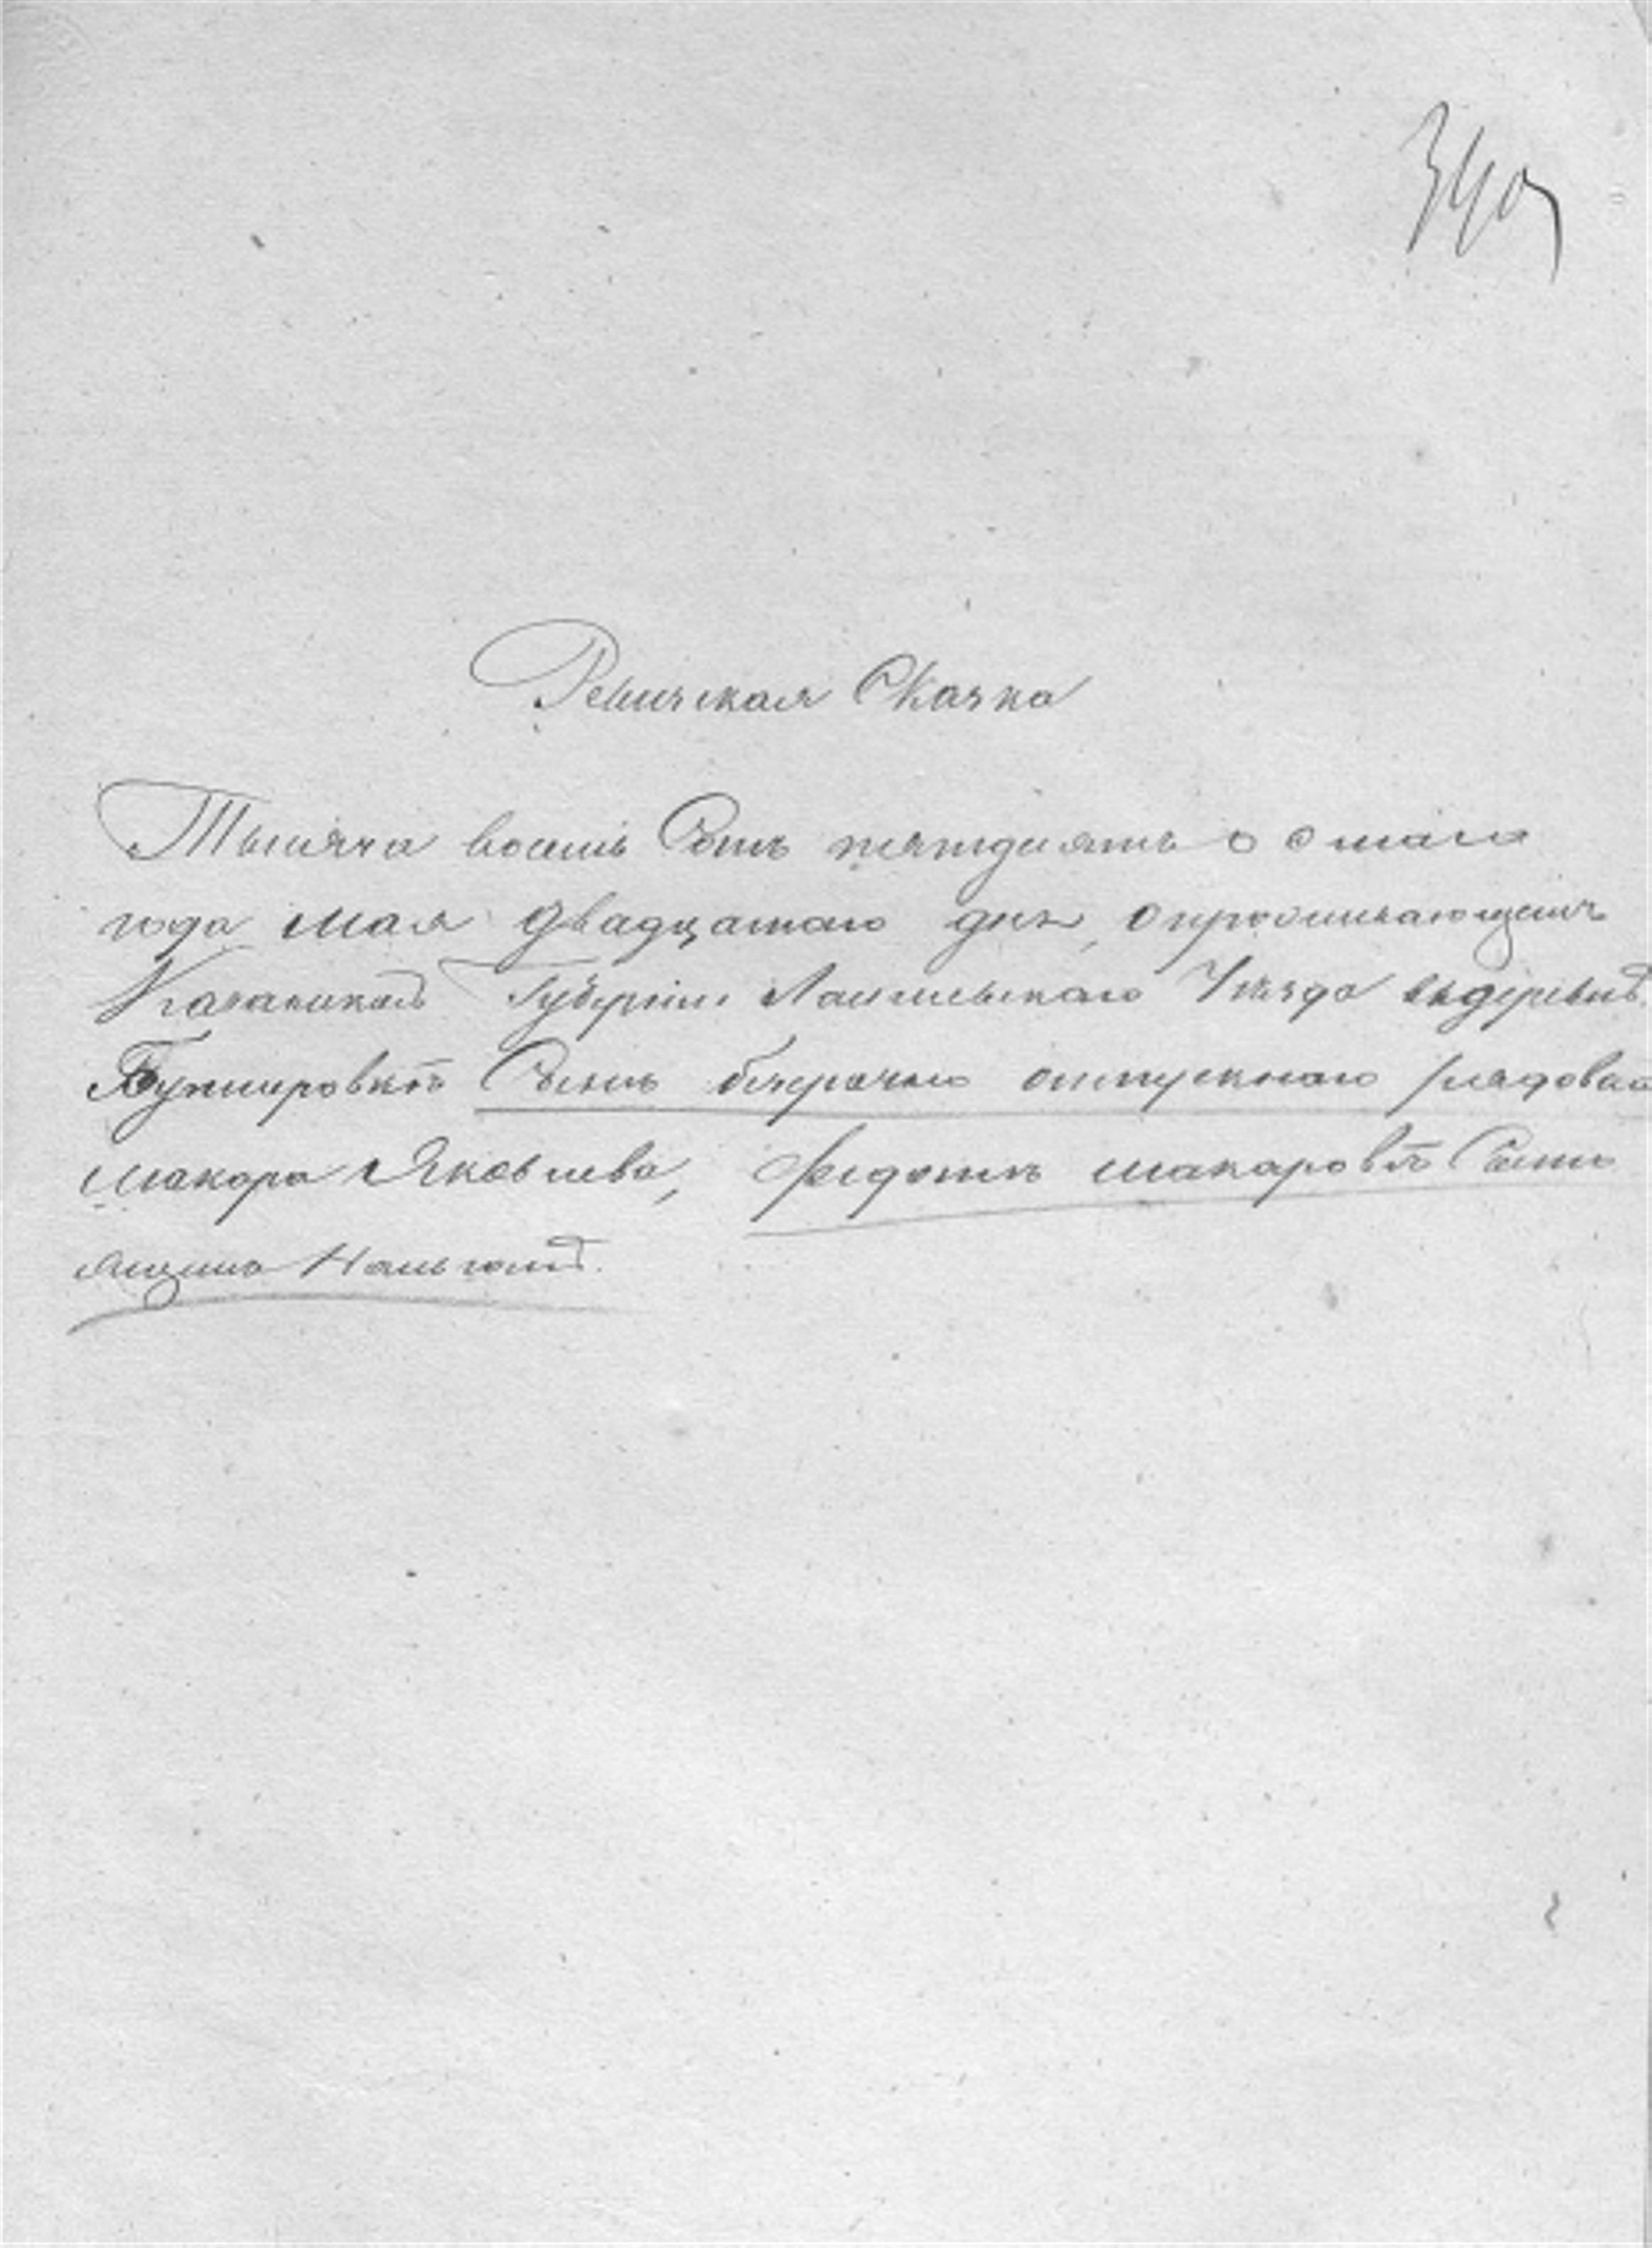 340
Ревиская Сказка
Тысяча восемь Сотъ пятдесятъ осмаго
года мая двадцатаго дня, опроживающемъ
Казанской Губерніи Лаишевскаго Уѣзда въ деревнѣ
Бутировкѣ Сынъ безсрочно отпускнаго рядоваго
макара Яковлева, Федотъ макаровъ Состо
ящимъ Налицо.